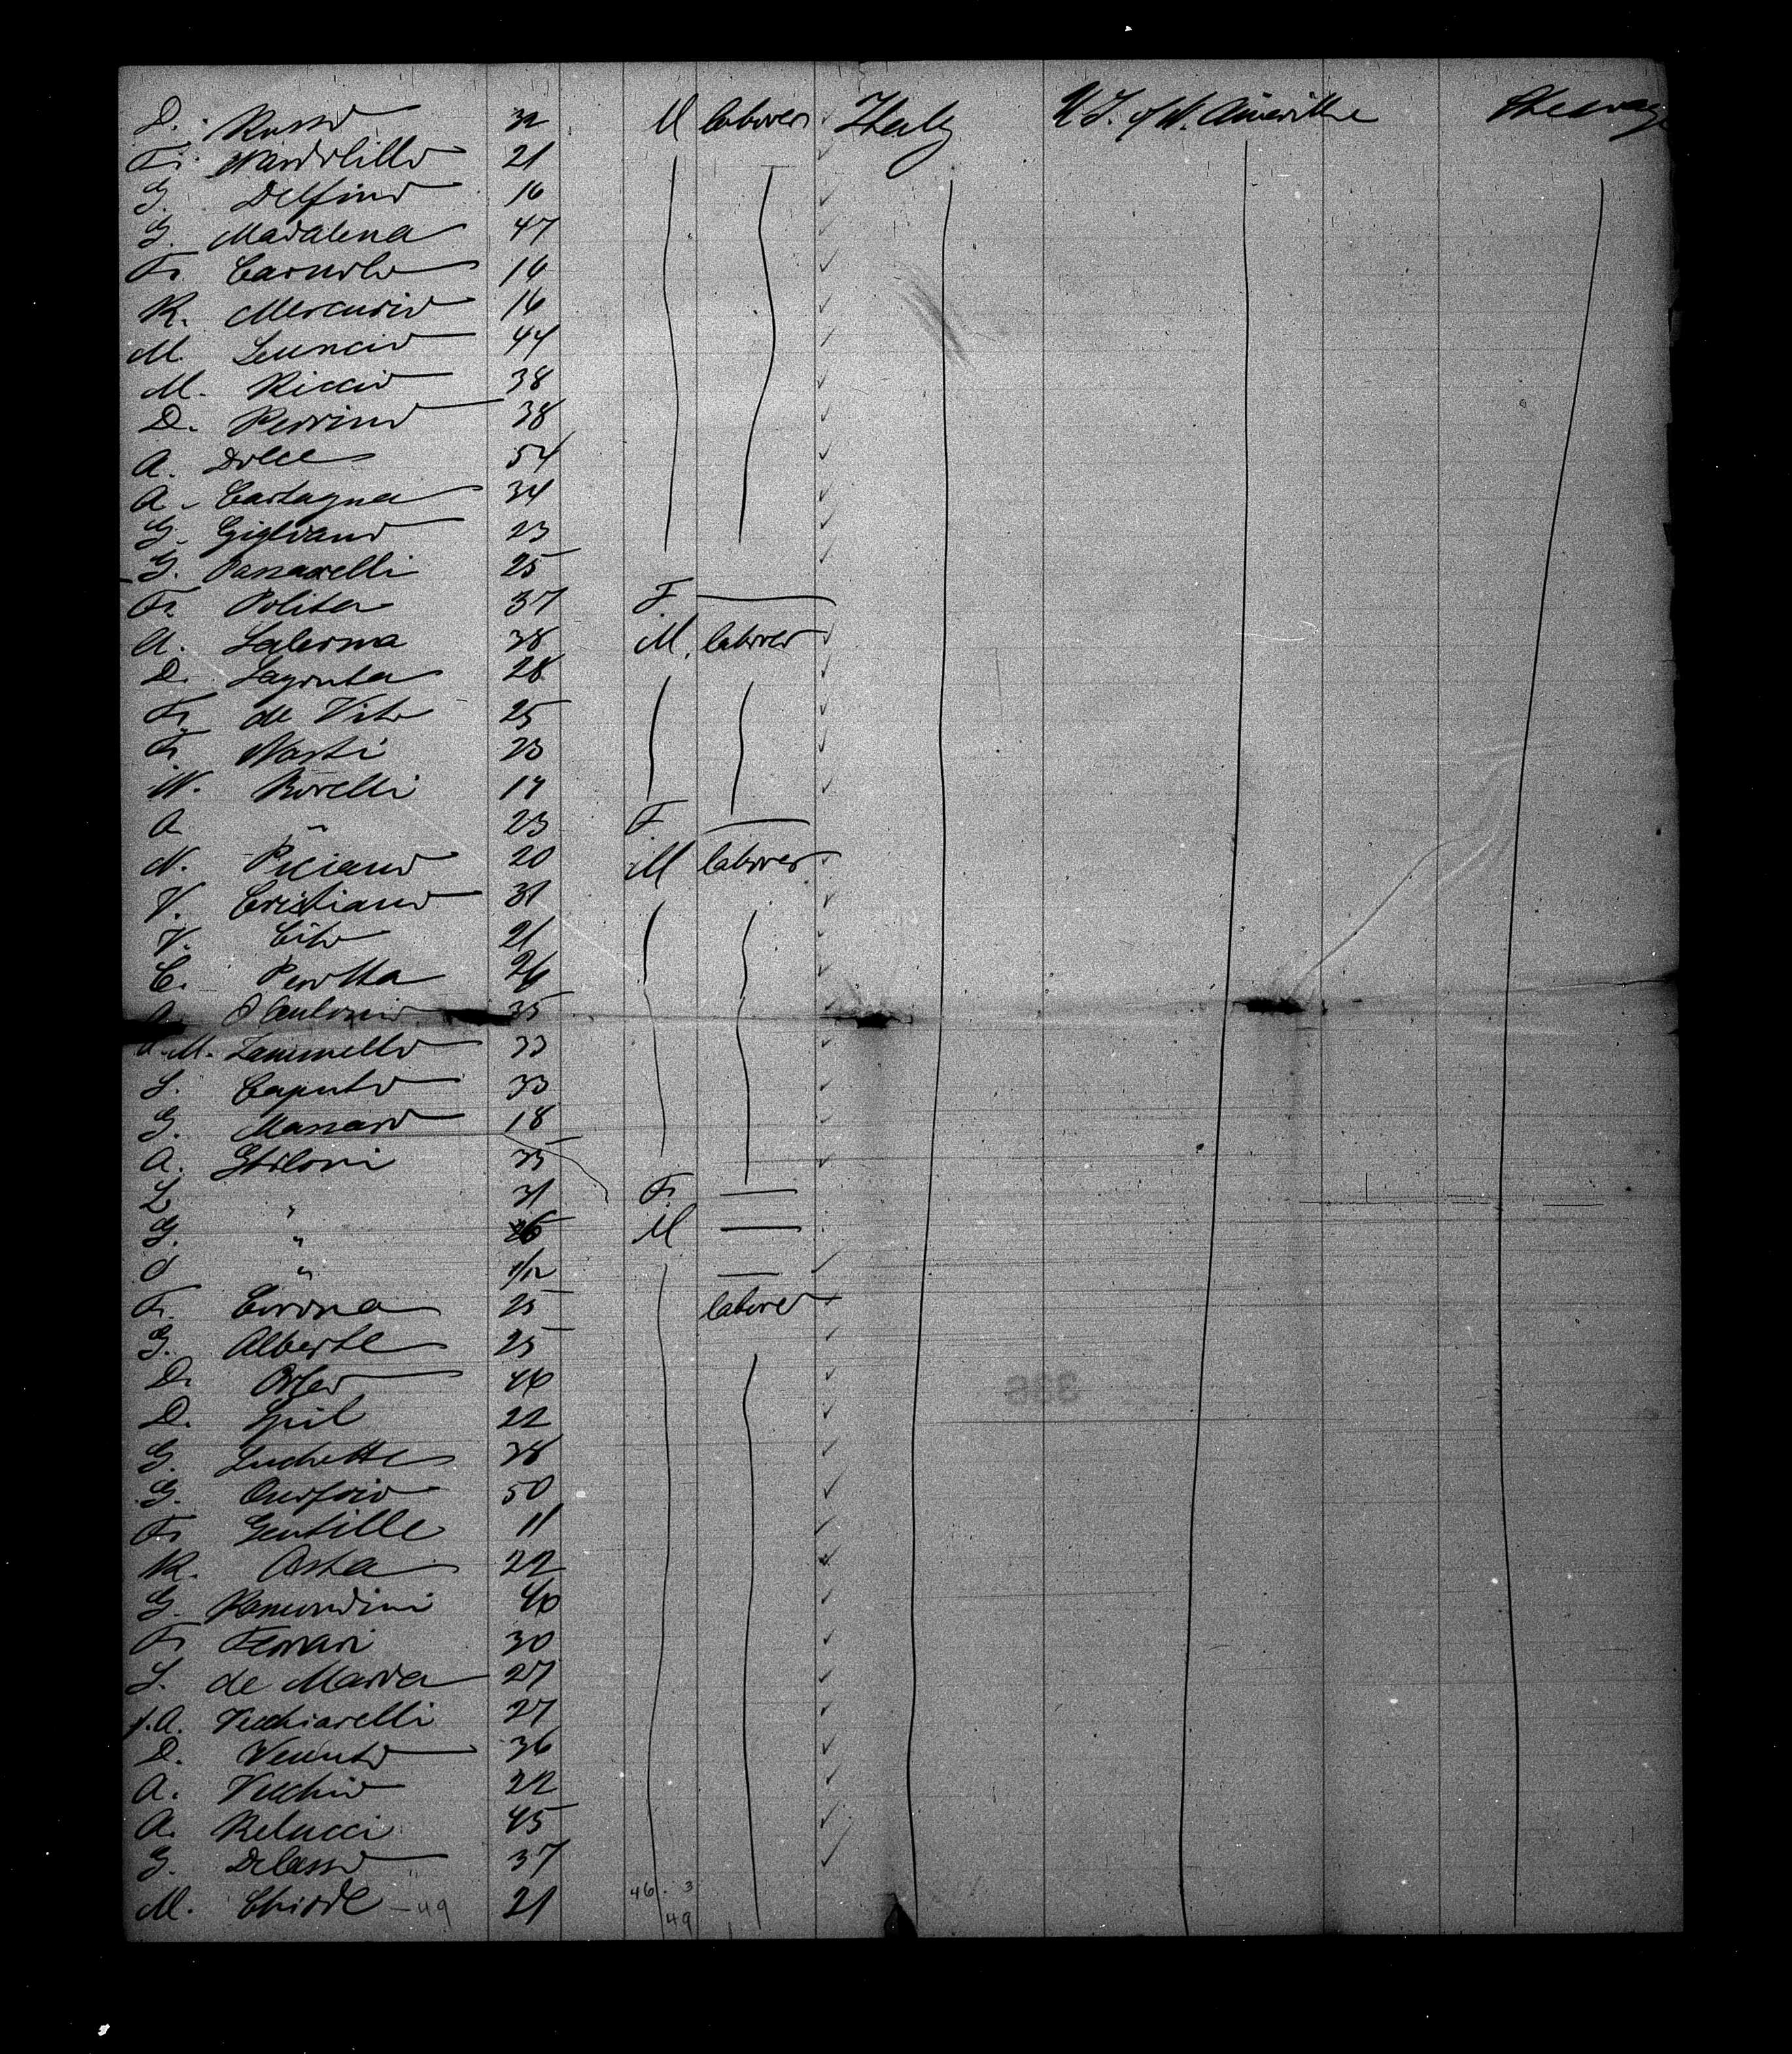 D. Russo 32 M laborer Italy U.S. of N. America Steerage
Fr. Nardolillo 21
G. Delfino 16
G. Madalena 47
Fr. Carnolo 16
R. Mercurio 16
M. Leuncio 44
M. Riccio 38
D. Perrino 38
A. Dolce 54
A. Castagna 34
G. Gigliano 23
G. Passarelli 25
Fr. Polita 37 F.
A. Salerma 38 M. laborer
D. Lagonta 28
Fr. de Vito 25
Fr. Nasti 23
N. Borelli 17
A. " 23 F
N. Piciano 20 M laborer
V. Cristiano 31
V. Cito 21
C. Perotta 26
D'Antonio 35
M. Iammello 33
S. Caputo 33
G. Massaro 18
A. Giloni 35
L " 31 F.
G. " M
" 1/12
Fr. Corona 25 laborer
G. Alberte 25
D. 46
D. 22
G. Luchette 38
G. Onofrio 50
Fr. Gentille 11
R. Asta 22
G. Ramondini 40
Fr Ferrari 30
S. de Marra 27
A. Vecchiarelli 27
D. Venuto 36
A. Vecchio 22
A. Relucci 45
G. Delasso 37
M. Chiode - 49 21 46. 3
49